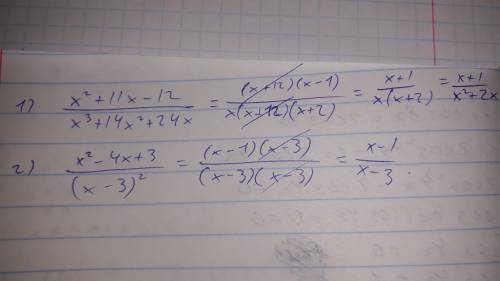 1) (x² + 11x − 12)/(x³ + 14x² + 24x) = ((x+12)(x−1))/(x(x+12)(x+2)) = (x+1)/(x(x+2)) = (x+1)/(x²+2x)
2) (x² − 4x + 3)/((x − 3)²) = ((x−1)(x−3))/((x−3)(x−3)) = (x−1)/(x−3).